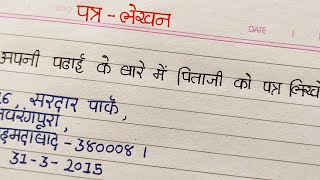 पत्र - लेखन
DATE
अपनी पढाई के बारे में पिताजी को पत्र लिखो
16, सरदार पार्क,
नवरंगपुरा,
अहमदाबाद - 380008।
31-3-2015